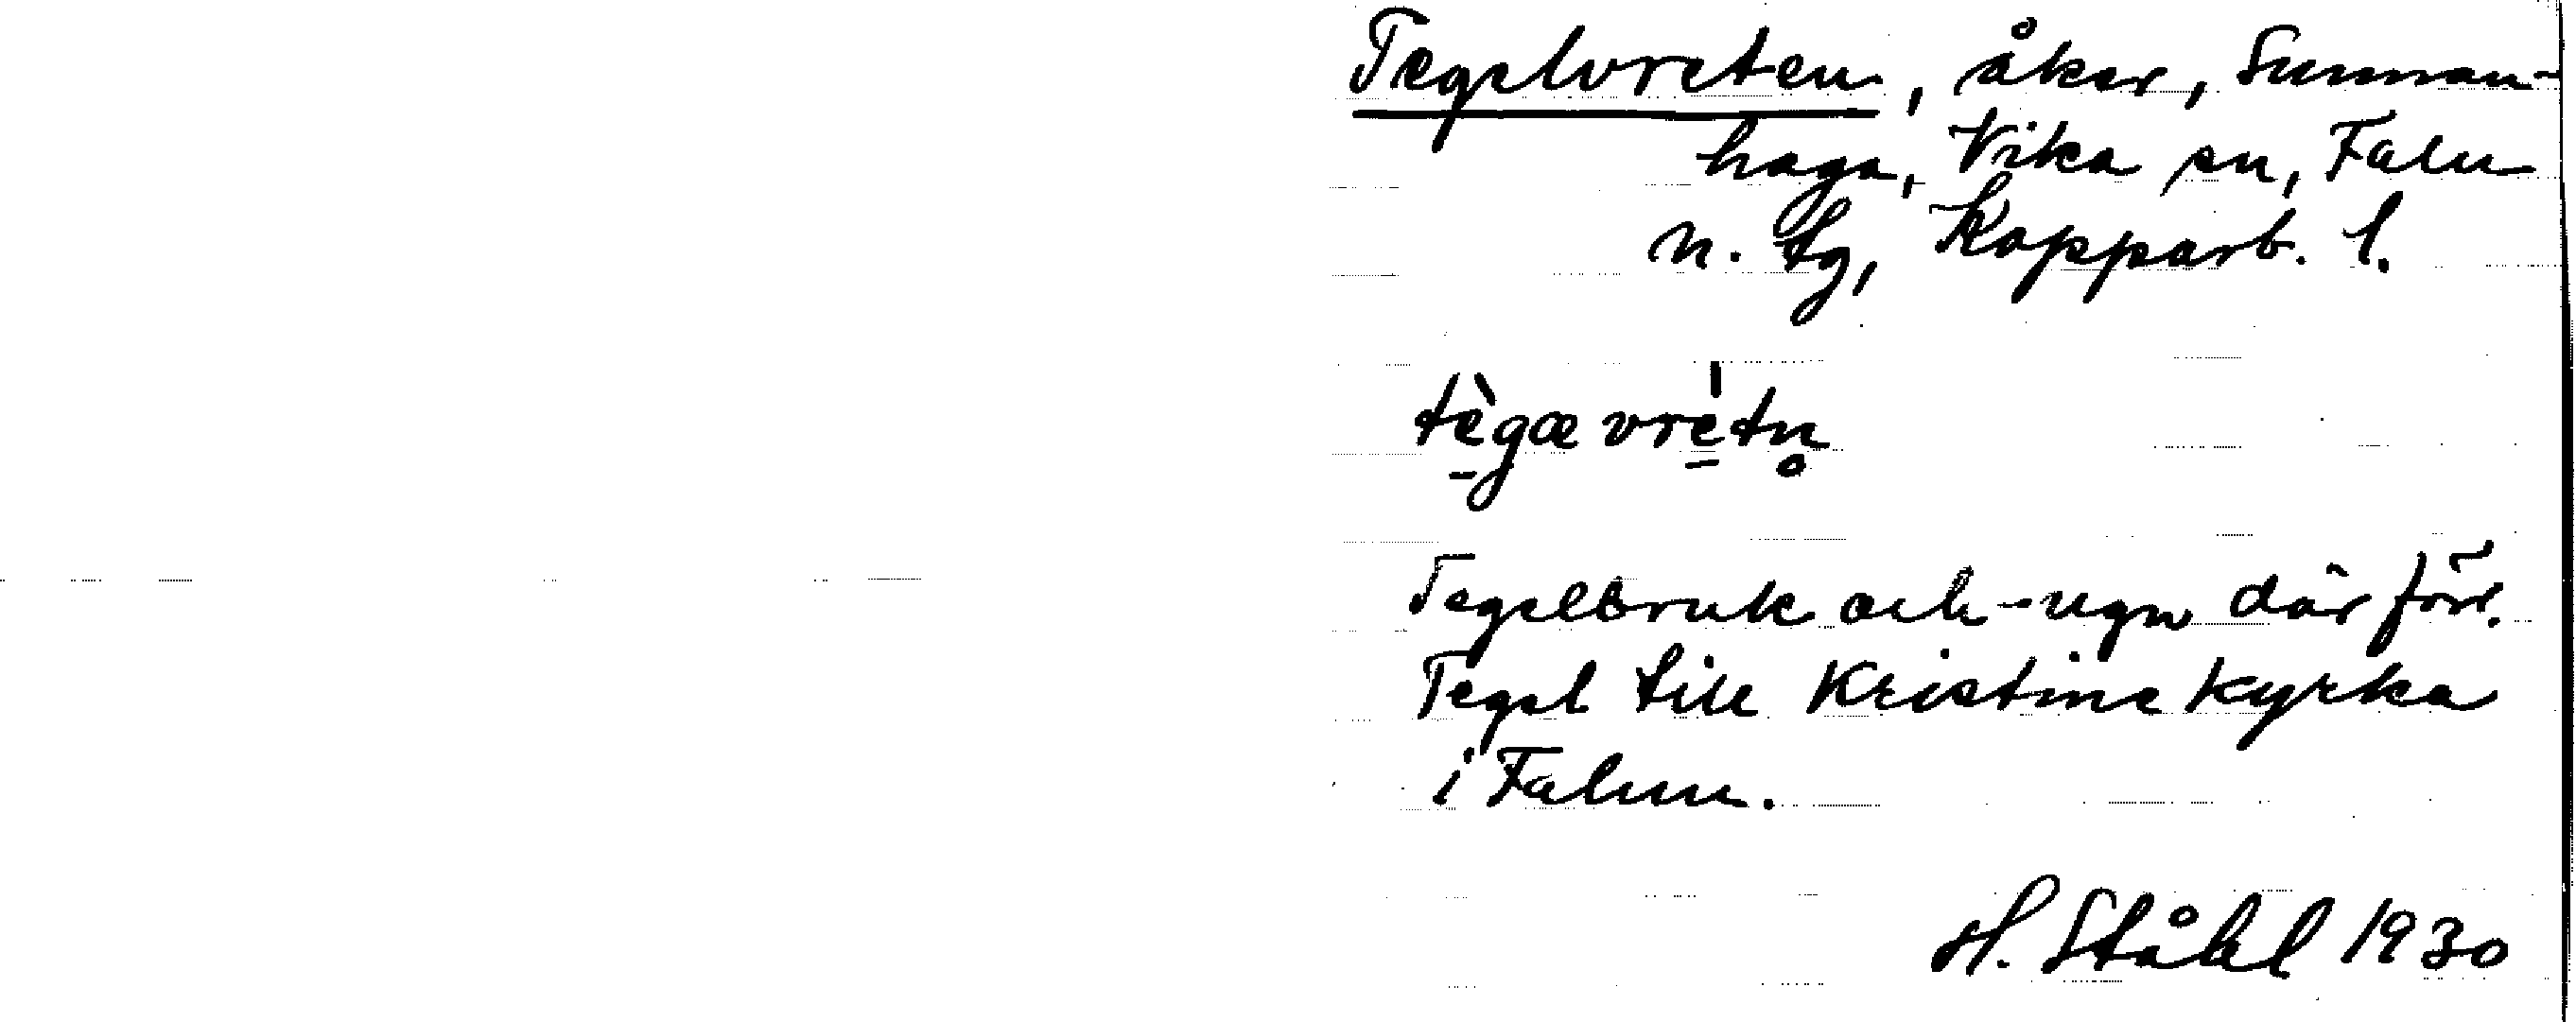 Tegelvreten, åker, Sunnan-
haga, Vika sn, Falu
n. tg, Kopparb. l.
tè̱gævrè̱tn̥
Tegelbruk och -ugn där förr.
Tegel till Kristine kyrka
i Falun.
H. Ståhl 1930